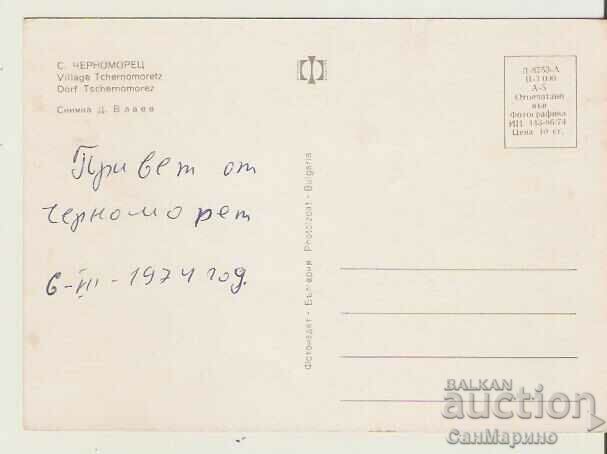 С. ЧЕРНОМОРЕЦ
Village Tchernomoretz
Dorf Tschernomorez
Снимка Д. Влаев
Привет от
Черноморет
6-III-1974 год.
Фотоиздат - България Photoizdat - Bulgaria
Д-8753-А
А-5
Отпечатано
във
Фотографика
ИП. 443-86/74
Цена 10 ст.
BALKAN
auction
СанМарино